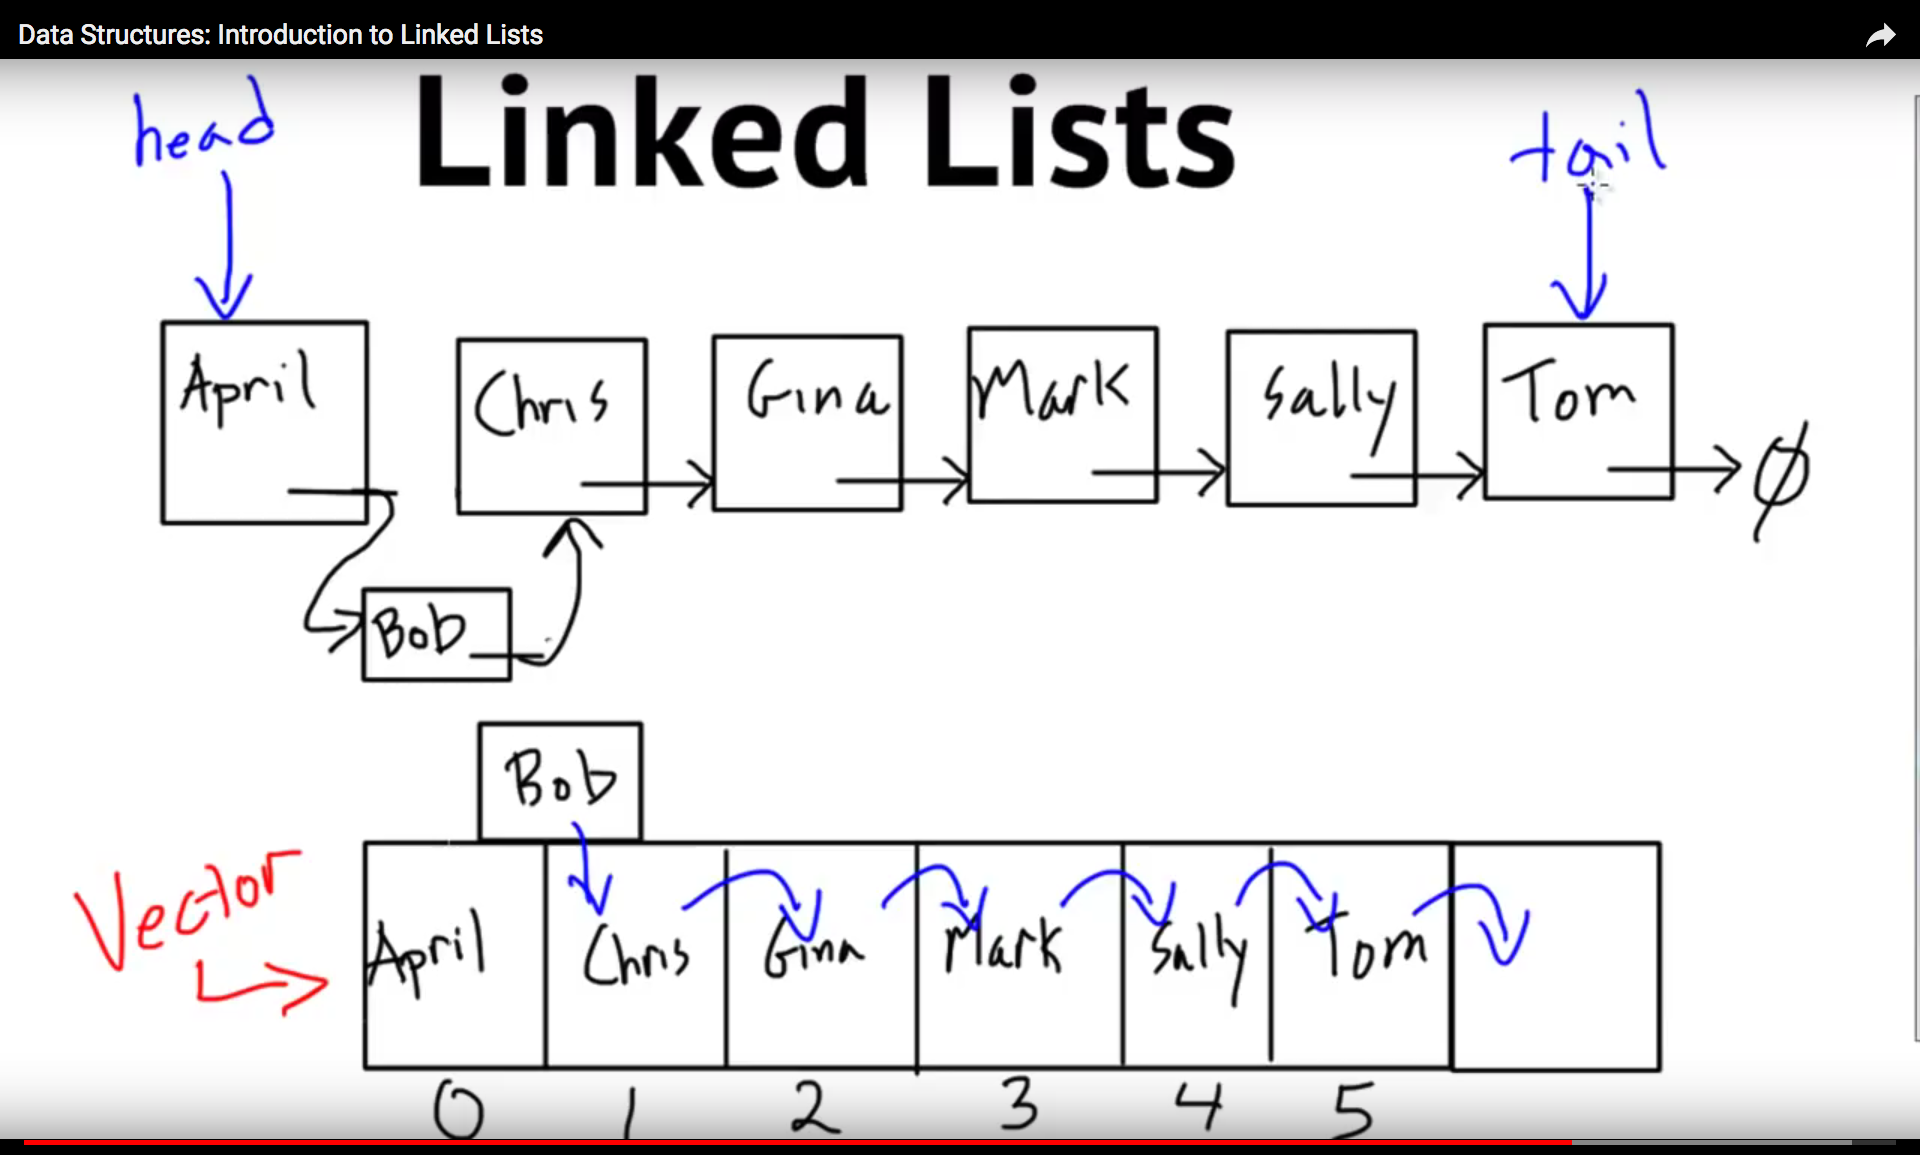 Data Structures: Introduction to Linked Lists
head Linked Lists tail
April Chris Gina Mark Sally Tom Ø
Bob
Bob
Vector
April Chris Gina Mark Sally Tom
0 1 2 3 4 5